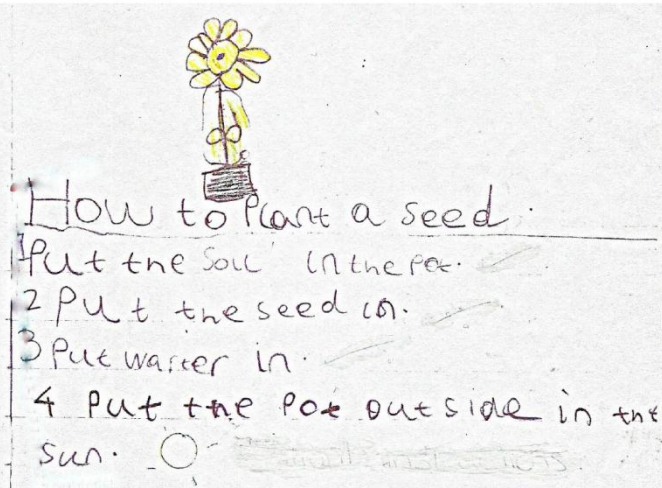 How to Plant a seed.
1 Put the Soil in the pot.
2 Put the seed in.
3 Put warter in.
4 Put the Pot outside in the
sun.